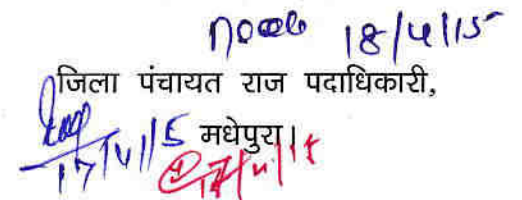 18/4/15
जिला पंचायत राज पदाधिकारी,
मधेपुरा।
17/4/15